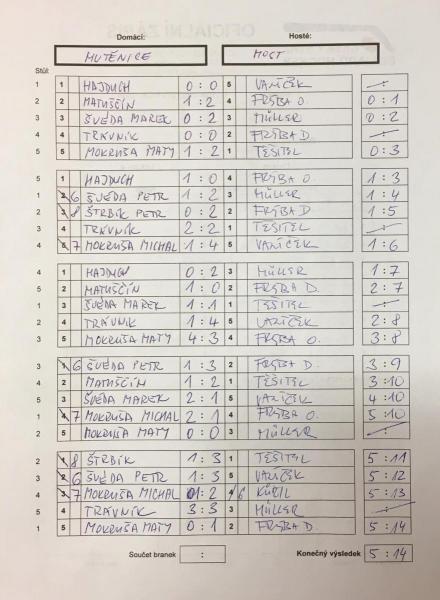 Domácí: Hosté:
MUTĚNICE MOST
Stůl:
1 1 HAJDUCH 0 : 0 5 VANÍČEK - : -
2 2 MATUŠČÍN 1 : 2 4 FRÝBA O. 0 : 1
3 3 ŠVÉDA MAREK 0 : 2 3 MÜLLER 0 : 2
4 4 TRÁVNÍK 0 : 0 2 FRÝBA D. - : -
5 5 MOKRUŠA MATY 1 : 2 1 TĚŠITEL 0 : 3
5 1 HAJDUCH 1 : 0 4 FRÝBA O. 1 : 3
1 2 6 ŠVÉDA PETR 1 : 2 3 MÜLLER 1 : 4
2 3 8 ŠTRBÍK PETR 0 : 2 2 FRÝBA D 1 : 5
3 4 TRÁVNÍK 2 : 2 1 TĚŠITEL - : -
4 5 7 MOKRUŠA MICHAL 1 : 4 5 VANÍČEK 1 : 6
4 1 HAJDUCH 0 : 2 3 MÜLLER 1 : 7
5 2 MATUŠČÍN 1 : 0 2 FRÝBA D. 2 : 7
1 3 ŠVÉDA MAREK 1 : 1 1 TĚŠITEL - : -
2 4 TRÁVNÍK 1 : 4 5 VANÍČEK 2 : 8
3 5 MOKRUŠA MATY 4 : 3 4 FRÝBA O. 3 : 8
3 1 6 ŠVÉDA PETR 1 : 3 2 FRÝBA D. 3 : 9
4 2 MATUŠČÍN 1 : 2 1 TĚŠITEL 3 : 10
5 3 ŠVÉDA MAREK 2 : 1 5 VANÍČEK 4 : 10
1 4 7 MOKRUŠA MICHAL 2 : 1 4 FRÝBA O. 5 : 10
2 5 MOKRUŠA MATY 0 : 0 3 MÜLLER - : -
2 1 8 ŠTRBÍK 1 : 3 1 TĚŠITEL 5 : 11
3 2 6 ŠVÉDA PETR 1 : 3 5 VANÍČEK 5 : 12
4 3 7 MOKRUŠA MICHAL 1 : 2 4 6 5 : 13
5 4 TRÁVNÍK 3 : 3 3 MÜLLER - : -
1 5 MOKRUŠA MATY 0 : 1 2 FRÝBA D. 5 : 14
Součet branek : Konečný výsledek 5 : 14